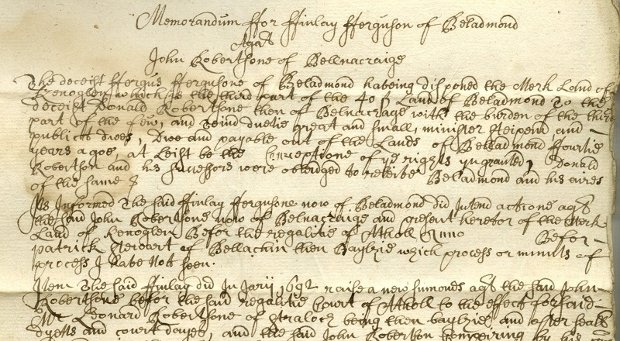 Memorandum ffor ffinlay fferguson of Beladmond
Agat
John Robertsone of Bellnacraige
The deceist ffergus fferguson of Beladmond haveing disponed the Merk Land of
Renogleyn which is the third part of the 40 s Land of Beladmond To the
deceist Donald Robertsone then of Belnacraige with the burden of the third
part of the few, and teind dutie great and small, minister steipend and
publict dives, Dew and payable out of the Lands of Belladmond fourtie
years agoe, at Leist be the Conceptione of ye rights ygranted Donald
Robertson and his successore were obledged to releive Beladmond and his aires
of the same
Is Informed The said ffinlay ffergusone now of Beladmond did Intend actione agat
the said John Robertsone now of Belnacraige and present heretor of the Merk
Land of Renoglen Befor the regalitie of Atholl Anno Befor
patrick Steuart of Bellachin then Baylzie which process or minuts of
process I have not seen.
Item The said ffinlay did in Janry 1692 raise a new sumonds agat the said John
Robertsone befor the said regalitie Court of Atholl to the effect forsaid
Mr Leonard Robertsone of Straloch being then baylzie and after seall
dyetts and court dayes, and the said John Robertson Compearing by his